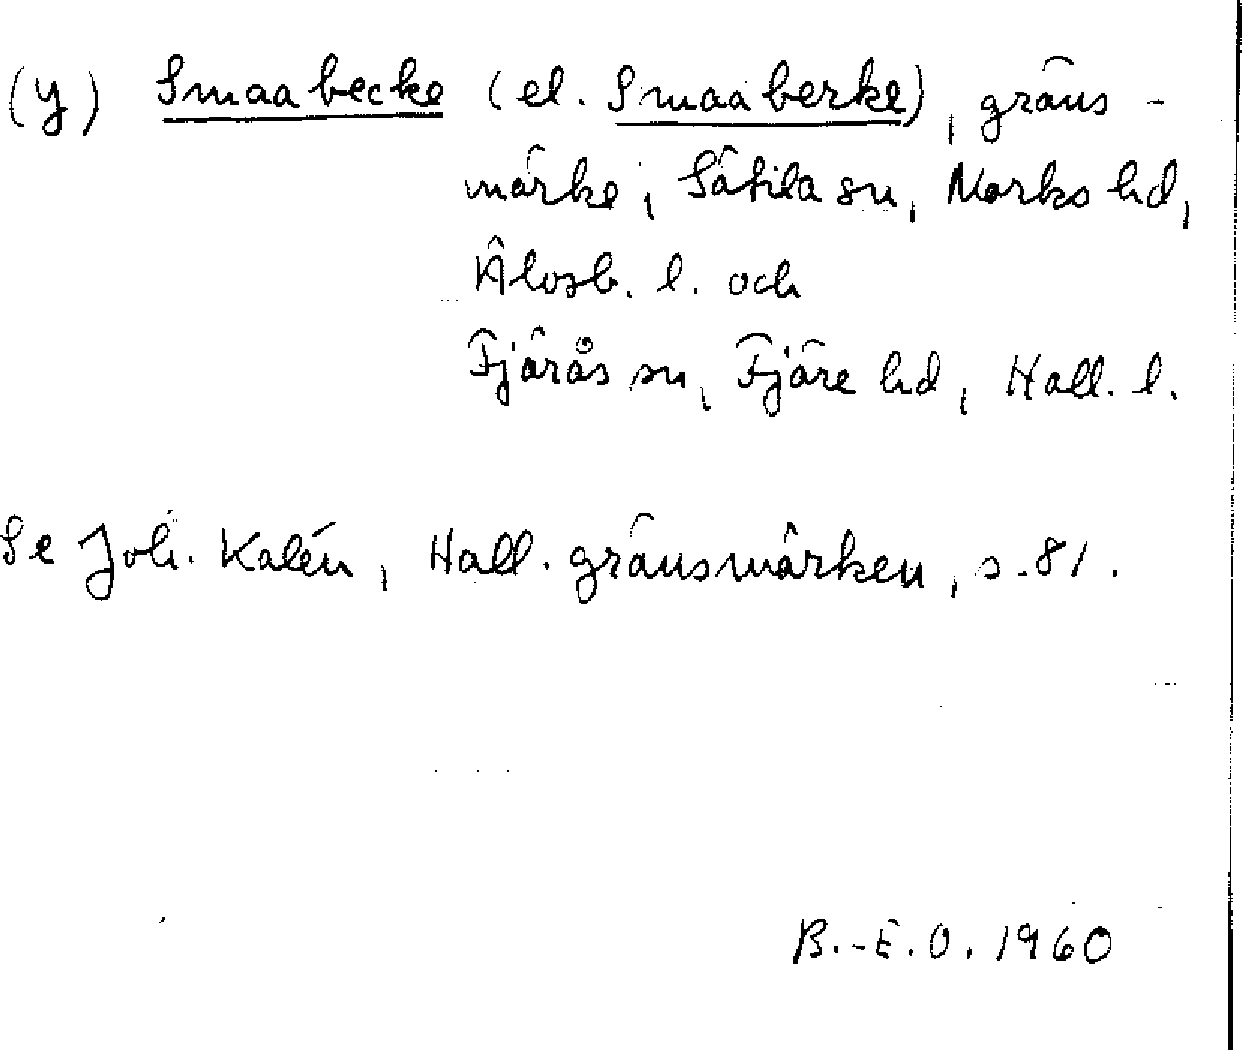 (y) Smaabecke (el. Smaaberke), gräns-
märke, Sätila sn, Marks hd,
Älvsb. l. och
Fjärås sn, Fjäre hd, Hall. l.
Se Joh. Kalén, Hall. gränsmärken, s. 81.
B.-E.O. 1960